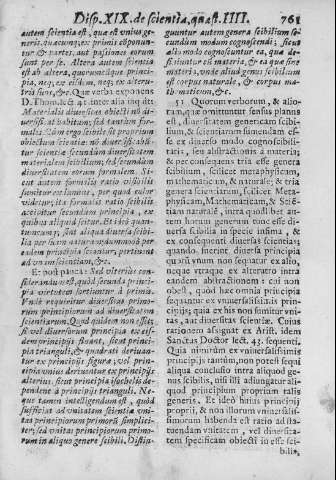 Disp. XIX. de scientia, quæst. IIII. 761
autem scientia est, quæ est vnius ge-
neris, quæcunq; ex primis exponun-
tur & partes, aut passiones eorum
sunt per se. Altera autem scientia
est ab altera, quorumcunque princi-
pia, neq; ex eisdem, neq; ex alteru-
tris sunt, &c. Quæ verba exponens
D. Thom. lect. 41. inter alia inq. dit:
Materialis diuersitas obiecti nō di-
uersificat habitum, sed tantum for-
malis. Cum ergo scibile sit proprium
obiectum scientiæ: nō diuersificabū-
tur scientiæ secundum diuersitatem
materialem scibilium; sed secundùm
diuersitatem eorum formalem. Si-
cut autem formalis ratio visibilis
sumitur ex lumine, per quod color
videtur; ita formalis ratio scibilis
accipitur secundum principia, ex
quibus aliquid scitur. Et ideò quan-
tumcunq; sint aliqua diuersa scibi-
lia per suam naturam dummodò per
eadem principia sciantur, pertinent
ad vnam scientiam, &c.
Et post pauca: Sed vlteriùs con-
siderandum est, quòd secunda princi-
pia virtutem sortiuntur à primis.
Vnde requiritur diuersitas primo-
rum principiorum ad diuersitatem
scientiarum. Quod quidem non esset, si
vel diuersorum principia ex eis-
dem principijs fluant, sicut princi-
pia trianguli, & quadrati deriuan-
tur ex principijs figuræ; vel prin-
cipia vnius deriuentur ex principijs
alterius, sicut principia isochelis de-
pendent à principijs trianguli. Ne-
que tamen intelligendum est, quòd
sufficiat ad vnitatem scientiæ vni-
tas principiorum primorū simplici-
ter; sed vnitas principiorum primo-
rum in aliquo genere scibili. Distin-
guuntur autem genera scibilium se-
cundum modum cognoscendi; sicut
alio modo cognoscuntur ea, quæ de-
finiuntur cū materia, & ea quæ sine
materia, vnde aliud genus scibilium
est corpus naturale, & corpus ma-
thematicum, &c.
51 Quorum verborum, & alio-
rum, quæ omittuntur sensus planus
est, diuersitatem genericam scibi-
lium, & scientiarum sumendam es-
se ex diuerso modo cognoscibili-
tatis, seu abstractionis à materia;
& per consequens tria esse genera
scibilium, scilicet metaphysicam,
mathematicum, & naturale; & tria
genera scientiarum, scilicet, Meta-
physicam, Mathematicam, & Sciē-
tiam naturalē, intra quodlibet au-
tem horum generum tunc esse di-
uersa scibilia in specie infima, &
ex consequenti diuersas scientias;
quando habent diuersa principia
quarū vnum non sequatur ex alio,
neque vtraque ex altero intra
eandem abstractionem: cui non
obest, quòd hæc omnia principia
sequantur ex vniuersalissimis prin-
cipijs; quia ex his non sumitur vni-
tas, aut diuersitas scientiæ. Cuius
rationem assignat ex Arist. idem
Sanctus Doctor lect. 43. sequenti.
Quia nimirùm ex vniuersalissimis
principijs tantùm, non potest sequi
aliqua conclusio intra aliquod ge-
nus scibilis, nisi illi adiungatur ali-
quod principium proprium talis
generis. Et ideò huius principij
proprij, & non illorum vniuersalis-
simorum habenda est ratio ad sta-
tuendam vnitatem, vel diuersita-
tem specificam obiecti in esse sci-
bilis,